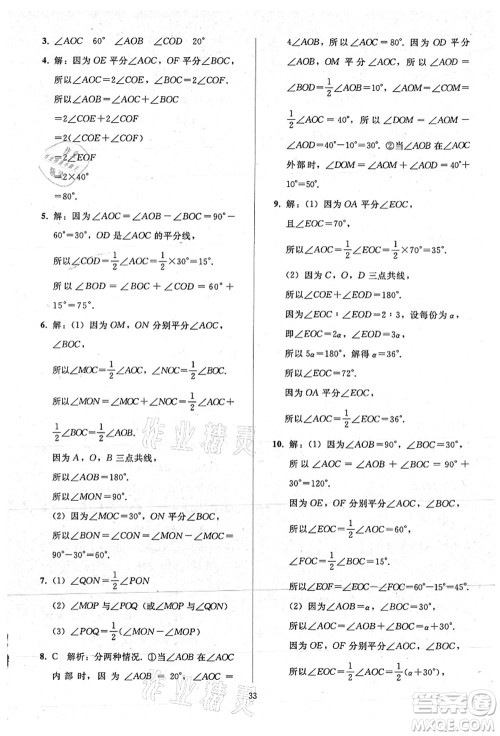 3. ∠AOC 60° ∠AOB ∠COD 20°
4. 解：因为 OE 平分∠AOC，OF 平分∠BOC，
所以∠AOC=2∠COE，∠BOC=2∠COF，
所以∠AOB=∠AOC+∠BOC
=2∠COE+2∠COF
=2(∠COE+∠COF)
=2∠EOF
=2×40°
=80°.
5. 解：因为∠AOC=∠AOB-∠BOC=90°-
60°=30°，OD 是∠AOC 的平分线，
所以∠COD=1/2∠AOC=1/2×30°=15°.
所以∠BOD=∠BOC+∠COD=60°+
15°=75°.
6. 解：(1) 因为 OM，ON 分别平分∠AOC，
∠BOC，
所以∠MOC=1/2∠AOC，∠NOC=1/2∠BOC.
所以∠MON=∠MOC+∠NOC=1/2∠AOC
+1/2∠BOC=1/2∠AOB.
因为 A，O，B 三点共线，
所以∠AOB=180°.
所以∠MON=90°.
(2) 因为∠MON=30°，ON 平分∠BOC，
所以∠BON=∠CON=30°.
所以∠BOC=2∠BON=60°.
7. (1) ∠QON=1/2∠PON
(2) ∠MOP 与∠POQ(或∠MOP 与∠QON)
(3) ∠POQ=1/2∠MOP
8. C 解析：分两种情况. ①当∠AOM 在∠AOC
内部时，因为∠AOB=20°，∠AOC=
4∠AOB，所以∠AOC=80°. 因为 OD 平分
∠AOB，OM 平分∠AOC，所以∠AOD=
∠BOD=1/2∠AOB=10°，∠AOM=∠COM
=1/2∠AOC=40°，所以∠DOM=∠AOM-
∠AOD=40°-10°=30°. ②当∠AOM 在∠AOC
外部时，∠DOM=∠AOM+∠AOD=40°+
10°=50°.
9. 解：(1) 因为 OA 平分∠EOC，
且∠EOC=70°，
所以∠AOC=1/2∠EOC=1/2×70°=35°.
(2) 因为 C，O，D 三点共线，
所以∠EOC+∠EOD=180°.
因为∠EOC：∠EOD=2：3，设每份为α，
即∠EOC=2α，∠EOD=3α，
所以 5α=180°，解得α=36°.
所以∠EOC=72°.
因为 OA 平分∠EOC，
所以∠AOC=1/2∠EOC=36°.
10. 解：(1) 因为∠AOB=90°，∠BOC=30°，
所以∠AOC=90°+30°=120°.
因为 OE，OF 分别平分∠AOC，∠BOC，
所以∠EOC=1/2∠AOC=60°，∠FOC=
1/2∠BOC=15°.
所以∠EOF=∠EOC-∠FOC=60°-15°=45°.
(2) 因为∠AOB=α，∠BOC=30°，
所以∠AOC=α+30°.
因为 OE，OF 分别平分∠AOC，∠BOC，
所以∠EOC=1/2∠AOC=1/2(α+30°)，
33
作业精灵
作业精灵
答案圈
MXQE.COM